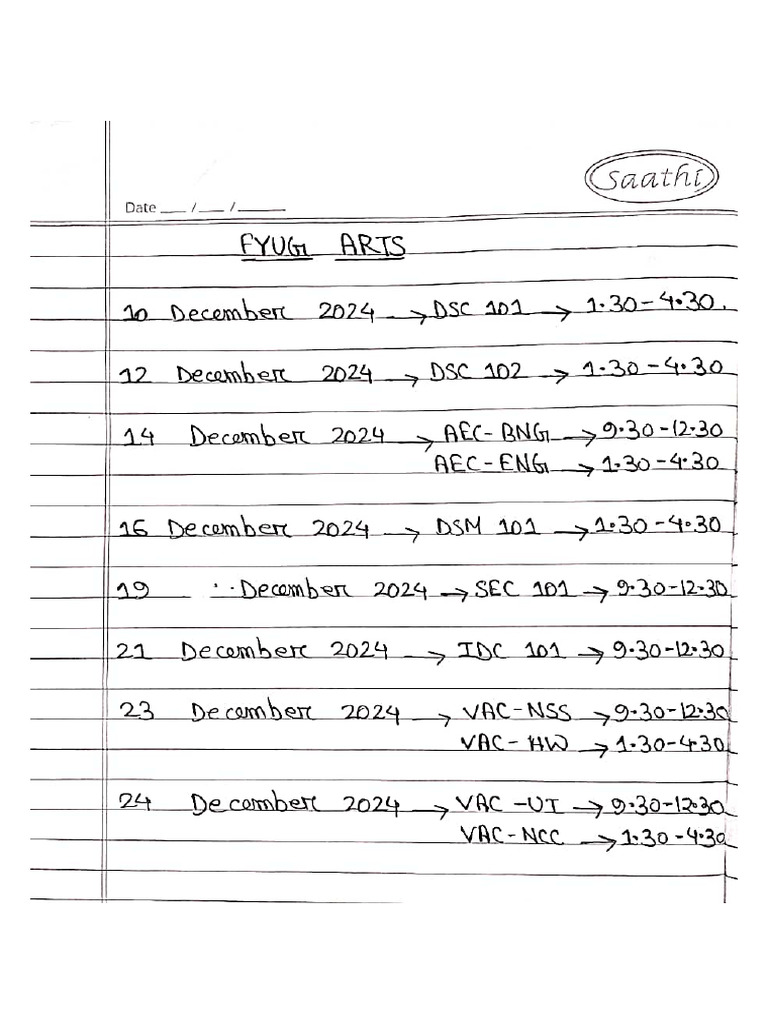 Saathi
Date __ / __ / ____
FYUG ARTS
10 December 2024 → DSC 101 → 1.30-4.30.
12 December 2024 → DSC 102 → 1.30-4.30
14 December 2024 → AEC-BNG → 9.30-12.30
AEC-ENG → 1.30-4.30
16 December 2024 → DSM 101 → 1.30-4.30
19 December 2024 → SEC 101 → 9.30-12.30
21 December 2024 → IDC 101 → 9.30-12.30
23 December 2024 → VAC-NSS → 9.30-12.30
VAC-HW → 1.30-4.30
24 December 2024 → VAC-UI → 9.30-12.30
VAC-NCC → 1.30-4.30